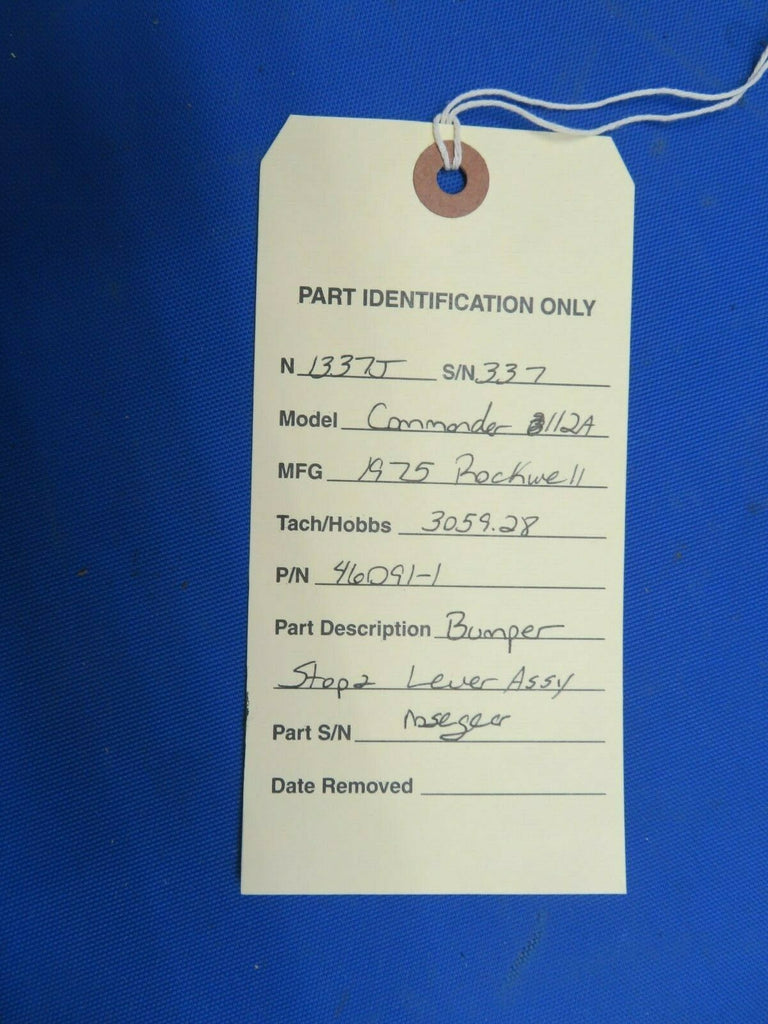 PART IDENTIFICATION ONLY
N 1337J S/N 337
Model Commander 112A
MFG 1975 Rockwell
Tach/Hobbs 3059.28
P/N 46091-1
Part Description Bumper
Stop & Lever Assy
Part S/N nosegear
Date Removed